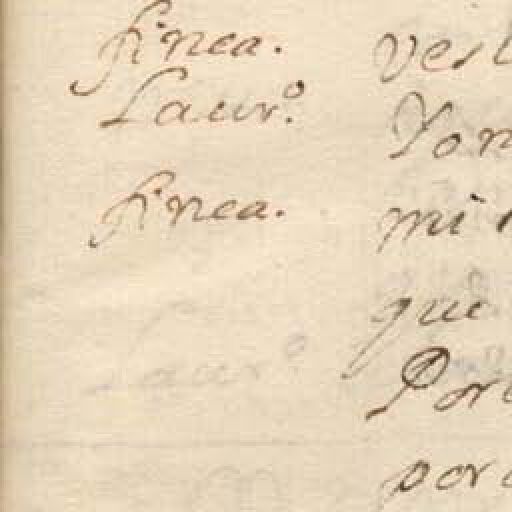 finea. vest
Laur.º Yo n
finea. mi
que
Laur.º Por
por